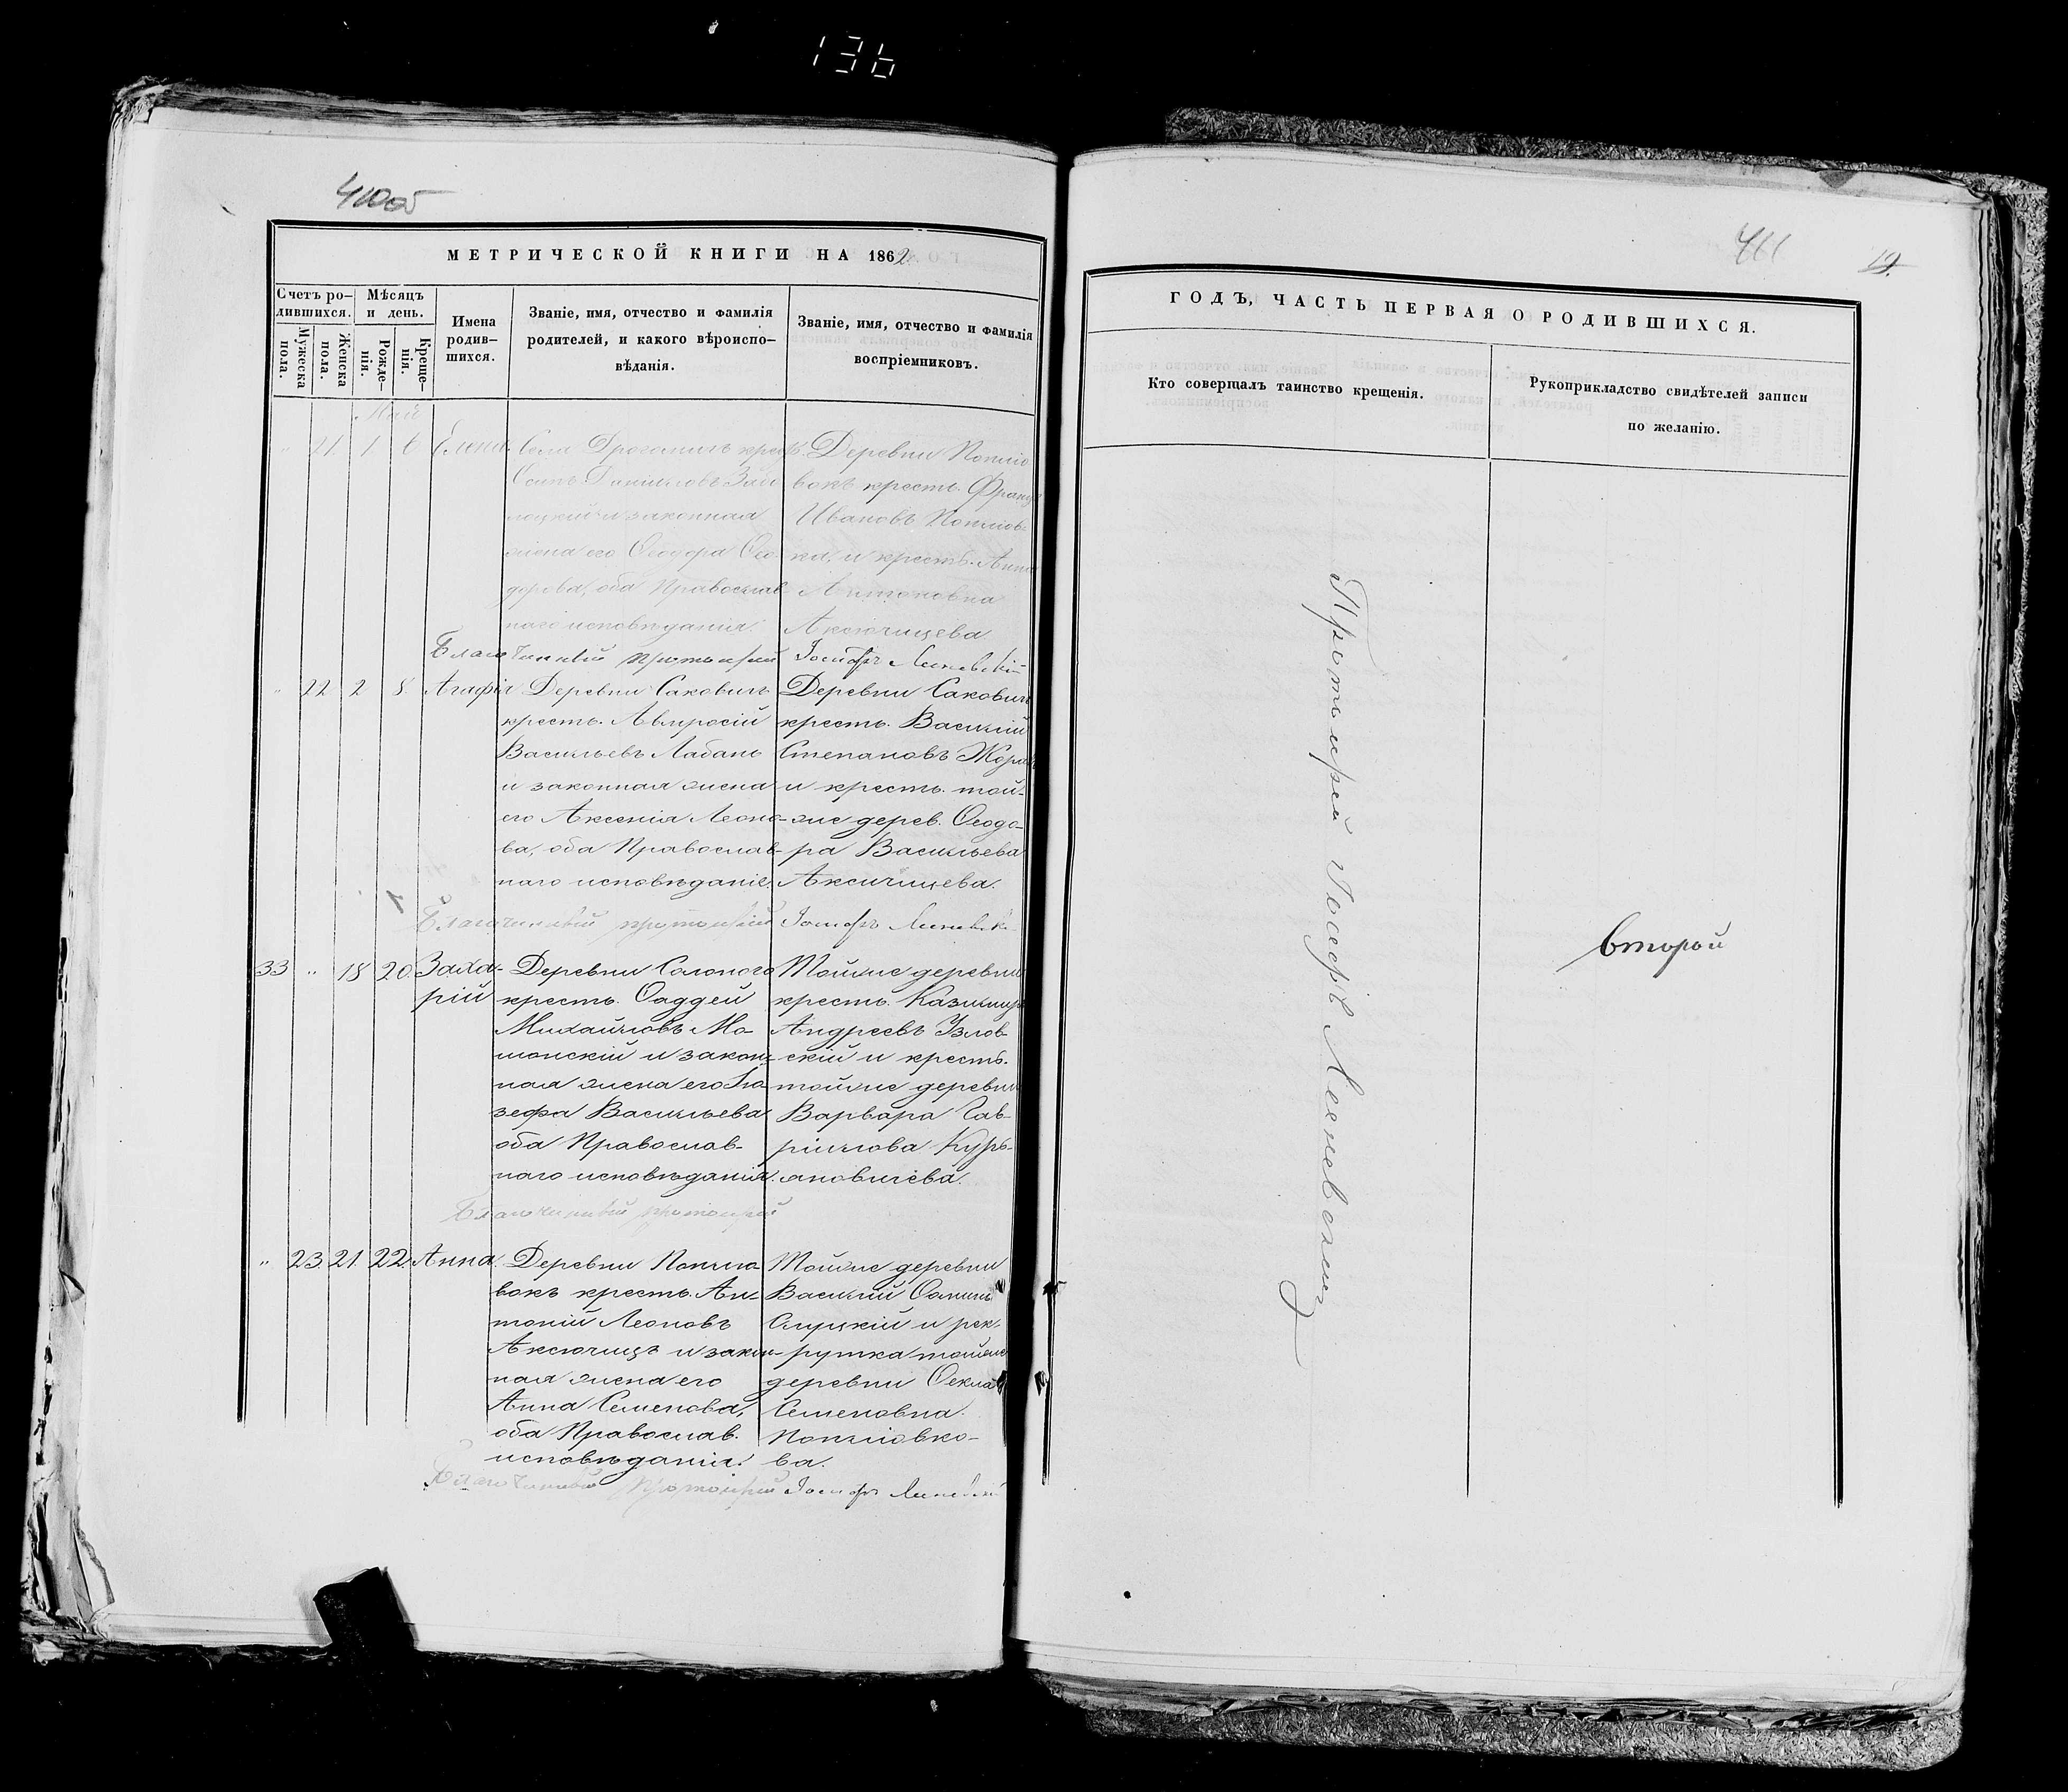 136
410об
МЕТРИЧЕСКОЙ КНИГИ НА 1862
Счетъ ро-
дившихся.
Мужеска
пола.
Женска
пола.
Мѣсяцъ
и день.
Рожде-
нія.
Креще-
нія.
Имена
родив-
шихся.
Званіе, имя, отчество и фамилія
родителей, и какого вѣроиспо-
вѣданія.
Званіе, имя, отчество и фамилія
воспріемниковъ.
Май
" 21 1 6 Елена
Села
Осипъ Даниловъ
и законная
жена его Ѳеодора Ѳео-
дорова, оба Православ-
наго исповѣданія.
Деревни Поплав-
вокъ крестъ. Франц
Ивановъ
ка, и крестъ. Анна
Антоновна
Аксючицева
Благочинный Протоіерей Іосифъ Линевскій
" 22 2 8 Агафія
Деревни Саковичъ
крестъ. Амвросій
Васильевъ Лабань
и законная жена
его Аксенія Леоно-
ва, оба Православ-
наго исповѣданіе.
Деревни Саковичъ
крестъ. Василій
Степановъ
и крестъ. той-
же дерев. Ѳеодо-
ра Васильева
Аксючицева.
Благочинный протоіерей Іосифъ Линевскій
33 " 18 20 Заха-
рій
Деревни
крестъ. Ѳаддей
Михайловъ Мо-
шонскій и закон-
ная жена его Іо-
зефа Васильева
оба Православ-
наго исповѣданія.
Тойже деревни
крестъ. Казимир
Андреевъ Узлов-
скій и крестъ.
тойже деревни
Варвара Гав-
ріилова Курь-
яновичева.
Благочинный протоіерей
" 23 21 22 Анна
Деревни
вокъ крестъ. Ан-
тоній Леоновъ
Аксючицъ и закон-
ная жена его
Анна Семенова,
оба Православ.
исповѣданія.
Тойже деревни
Василій Ѳоминъ
Слуцкій и рек-
рутка тойже
деревни Ѳекла
Семеновна
ва.
Благочинный Протоіерей Іосифъ Линевскій
411
19.
ГОДЪ, ЧАСТЬ ПЕРВАЯ О РОДИВШИХСЯ.
Кто совершалъ таинство крещенія.
Рукоприкладство свидѣтелей записи
по желанію.
Протоіерей Іосифъ Линевскій
второй